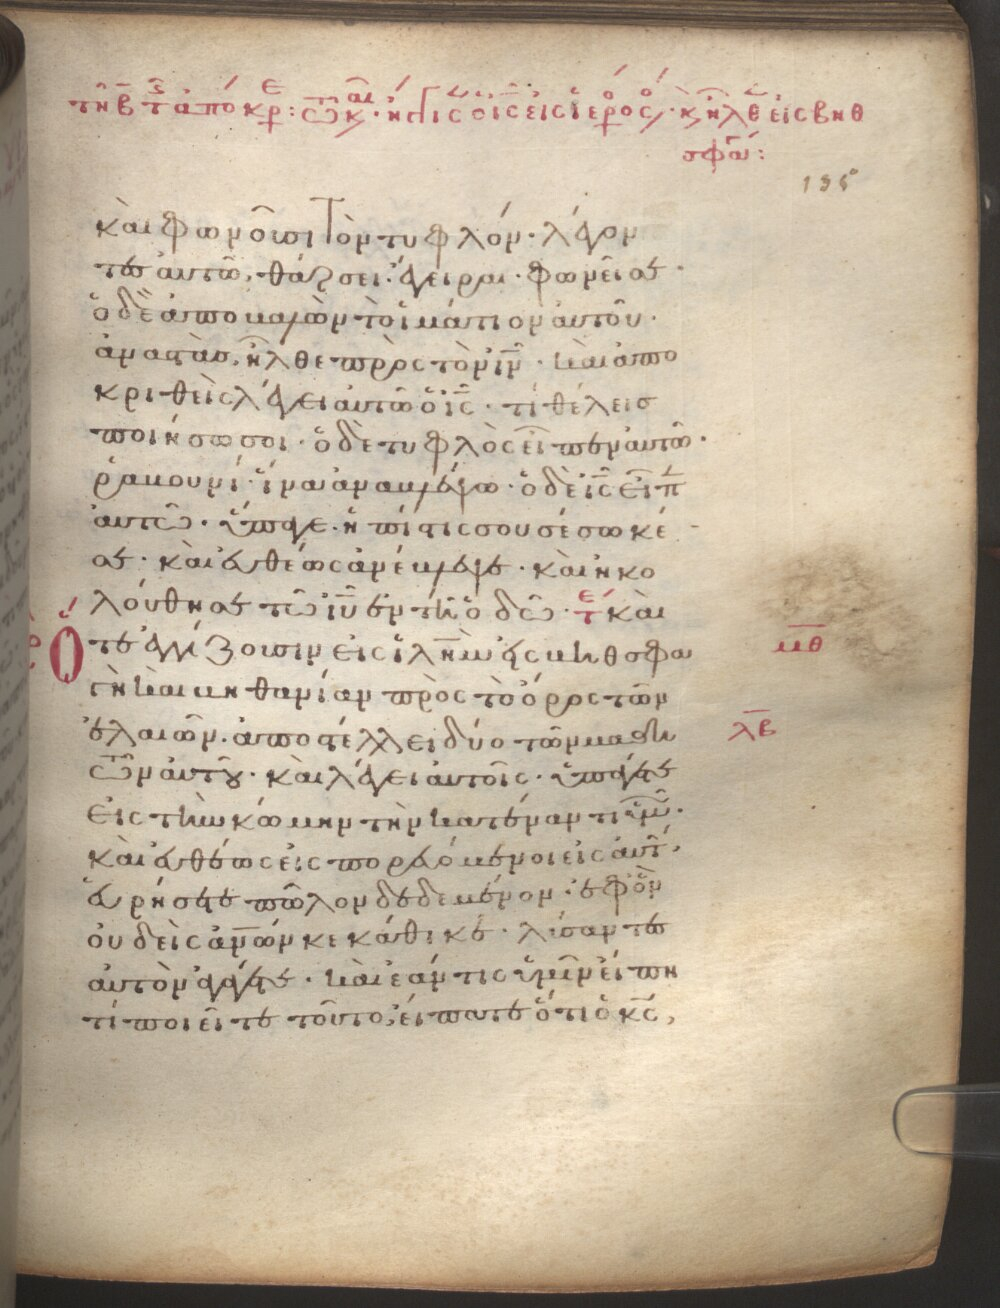 τῆ β̄ τ̄ ἀπόκρ:
135
καὶ φωνοῦσι τὸν τυφλόν· λέγον
τες αὐτῶ, θάρσει· ἔγειραι· φωνεῖ σε·
ὁ δὲ ἀποβαλὼν τὸ ἱμάτιον αὐτοῦ·
ἀναστὰς, ἦλθε πρὸς τὸν ιν̄· καὶ ἀπο
κριθεὶς λέγει αὐτῶ ὁ ις̄· τί θέλεις
ποιήσω σοι· ὁ δὲ τυφλὸς εἶπεν αὐτῶ·
ραβουνί· ἵνα ἀναβλέψω· ὁ δὲ ις̄ εἶπ
αὐτῶ· ὕπαγε· ἡ πίστις σου σέσωκέ
σε· καὶ εὐθέως ἀνέβλεψε· καὶ ἠκο
λούθησε τῶ ιῦ ἐν τῆ ὁδῶ· τε καὶ
Ὅτε ἐγγίζουσιν εἰς ἱλη̄μ εἰς βηθσφα
γὴ καὶ βηθανίαν πρὸς τὸ ὄρος τῶν
μθ
ἐλαιῶν· ἀποστέλλει δύο τῶν μαθη
λβ
τῶν αὐτοῦ· καὶ λέγει αὐτοῖς· ὑπάγετε
εἰς τὴν κώμην τὴν κατέναντι ὑμῶν·
καὶ εὐθέως εἰσπορευόμενοι εἰς αὐτ,
εὑρήσετε πῶλον δεδεμένον· ἐφ ὃν
οὐδεὶς ἀν̄ων κεκάθικε· λύσαντες
αὐτὸν ἀγάγετε· καὶ ἐάν τις ὑμῖν εἴπη
τί ποιεῖτε τοῦτο, εἴπατε ὅτι ὁ κς̄,